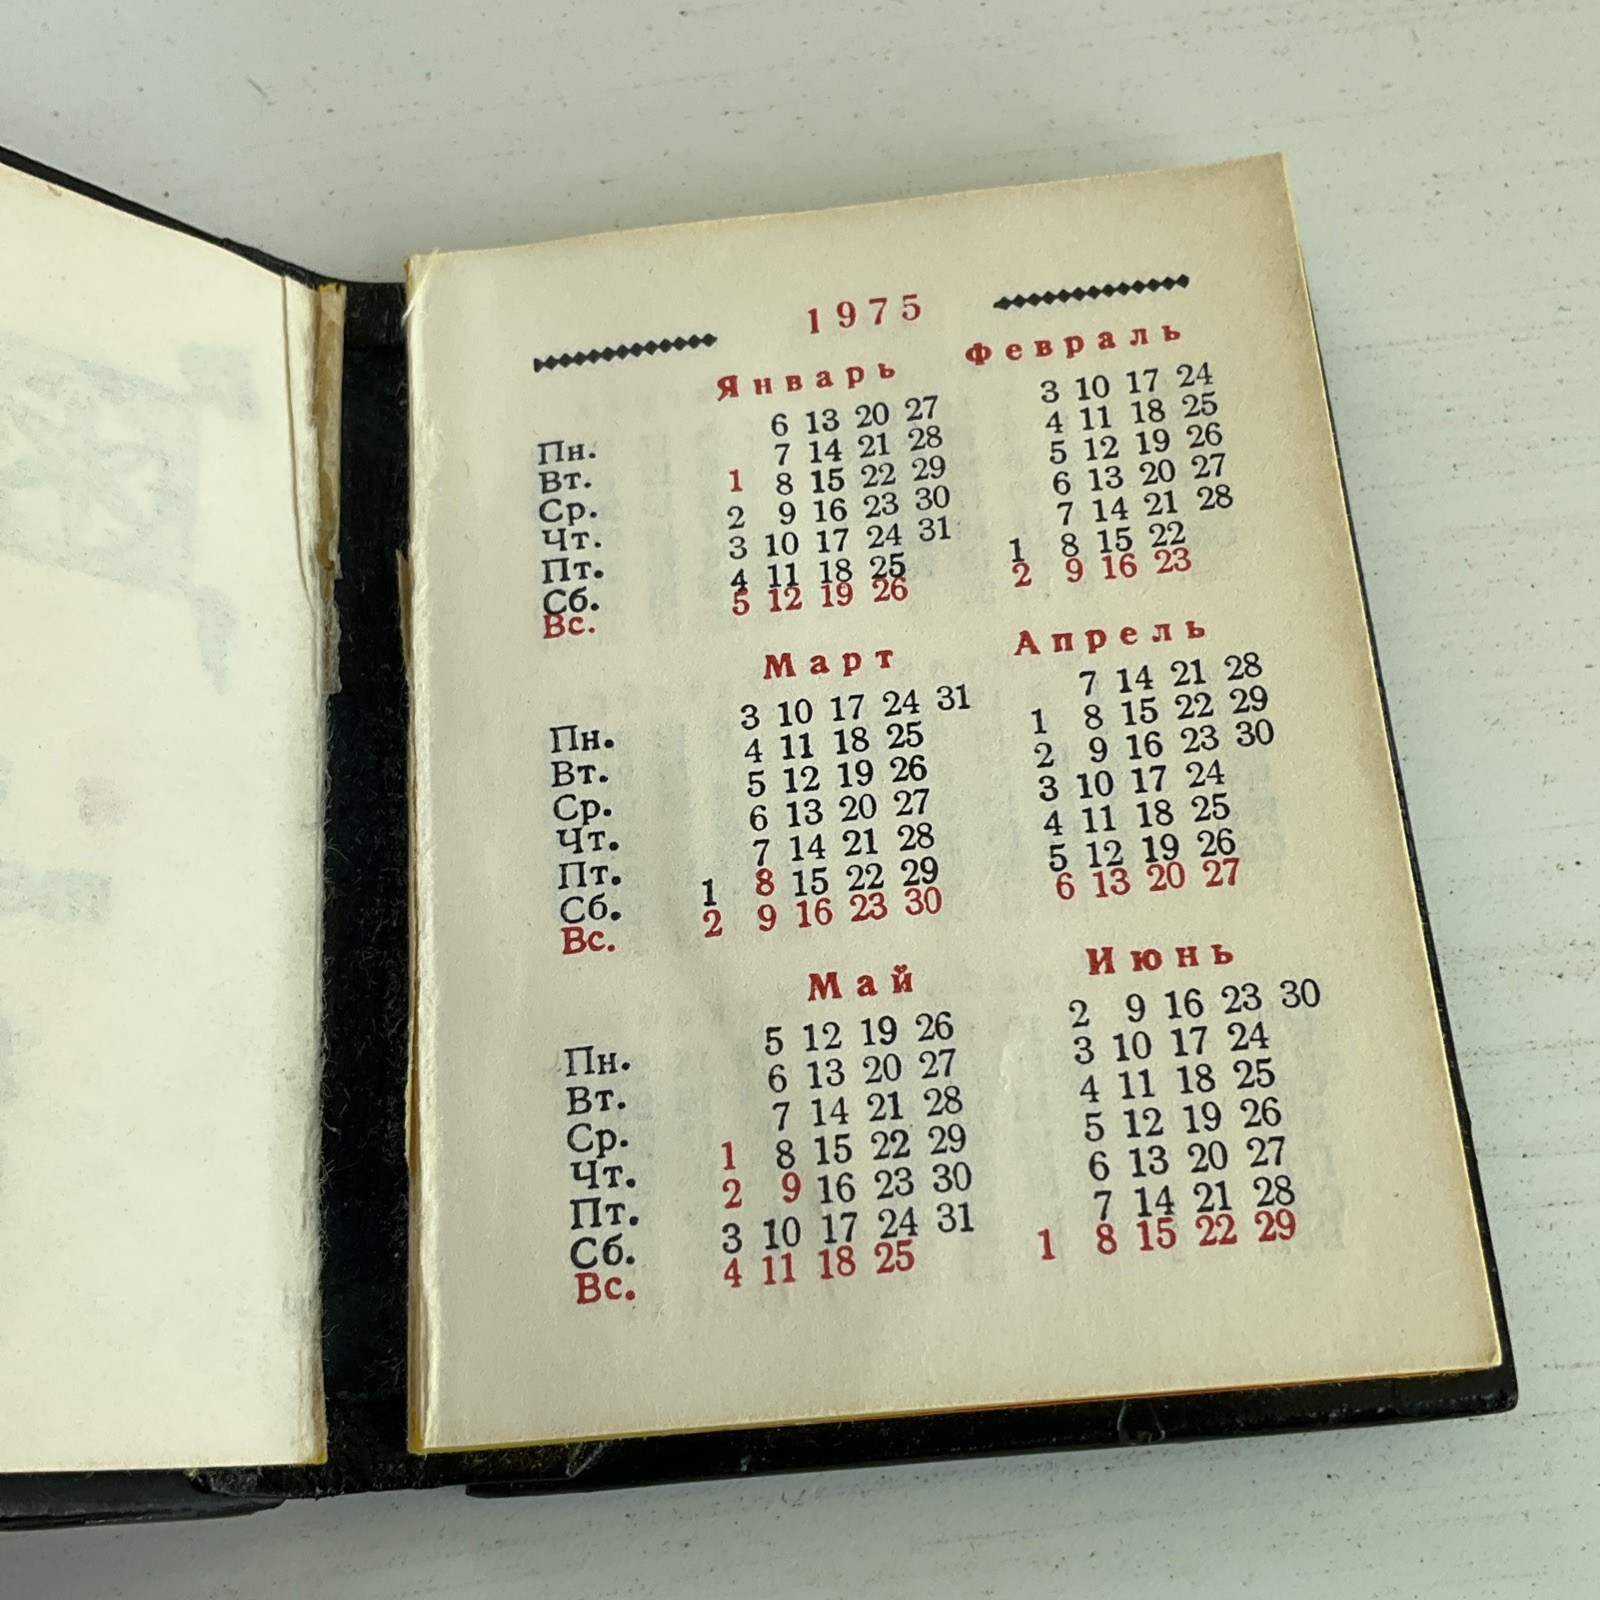 1975
Январь Февраль
Пн. 6 13 20 27 3 10 17 24
Вт. 7 14 21 28 4 11 18 25
Ср. 1 8 15 22 29 5 12 19 26
Чт. 2 9 16 23 30 6 13 20 27
Пт. 3 10 17 24 31 7 14 21 28
Сб. 4 11 18 25 1 8 15 22
Вс. 5 12 19 26 2 9 16 23
Март Апрель
Пн. 3 10 17 24 31 7 14 21 28
Вт. 4 11 18 25 1 8 15 22 29
Ср. 5 12 19 26 2 9 16 23 30
Чт. 6 13 20 27 3 10 17 24
Пт. 7 14 21 28 4 11 18 25
Сб. 1 8 15 22 29 5 12 19 26
Вс. 2 9 16 23 30 6 13 20 27
Май Июнь
Пн. 5 12 19 26 2 9 16 23 30
Вт. 6 13 20 27 3 10 17 24
Ср. 7 14 21 28 4 11 18 25
Чт. 1 8 15 22 29 5 12 19 26
Пт. 2 9 16 23 30 6 13 20 27
Сб. 3 10 17 24 31 7 14 21 28
Вс. 4 11 18 25 1 8 15 22 29